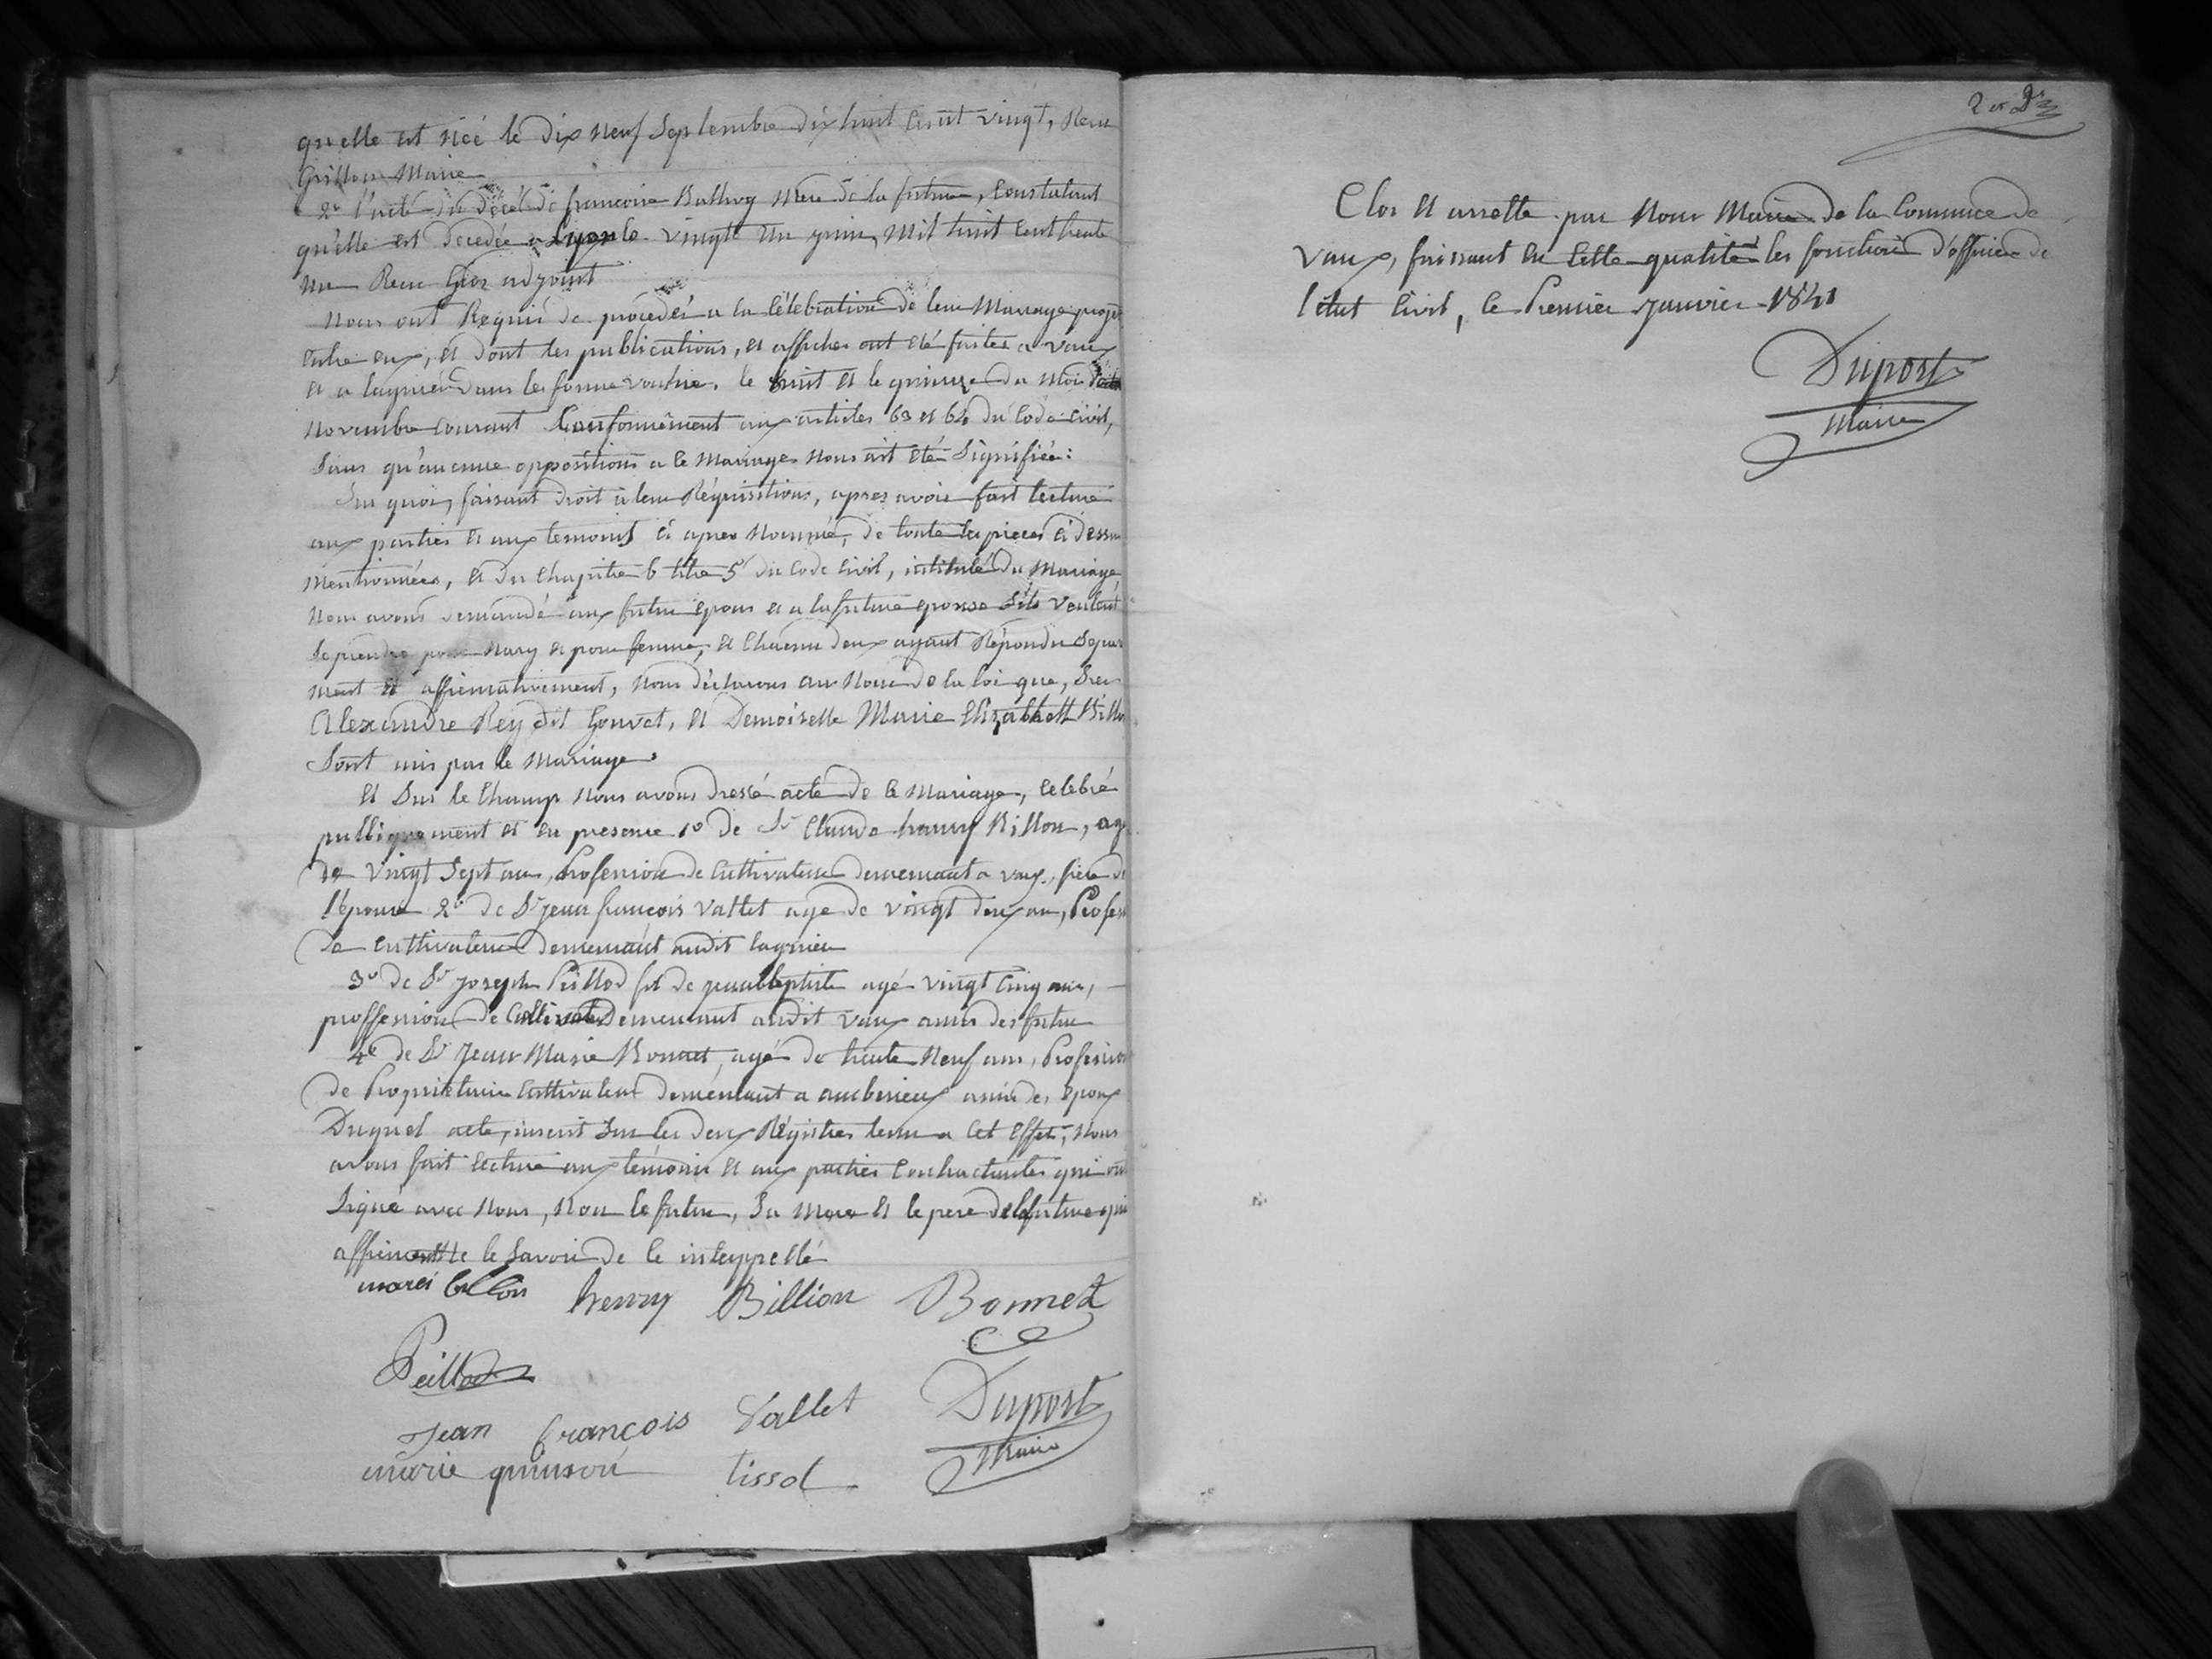 qu'elle est néé le dix neuf Septembre dix huit cent vingt, Reçu
Grillon Maire
2º l'acte du décè de francoise Mère de la future, Constatant
qu'elle est decedée a Lyon le vingt un juin, Mil huit cent trente
un Reçu adjoint
Nous ont Requis de procéder a la Célébration de leur Mariage projet
entre eux, et dont les publications, et affiches ont été faites a vaux
et a lagnieu dans les forme voulue, le huit et le quinze du Moi de
Novembre courant Conformément aux articles 63 et 64 du Code Civil,
Sans qu'aucune oppositions a ce Mariage Nous ait été Signifiée:
Sur quoi, faisant droit à leur Réquisitions, apres avoir fait lecture
aux parties et aux temoins ci apres Nommé, de toute les pieces ci dessu
Mentionnées, et du Chapitre 6 titre 5 du Code Civil, intitulé du Mariage,
Nous avons demandé aux futur epoux et a la future epouse S'ils veulent
Se prendre pour Mary et pour femme, et Chacun deux ayant Répondu Separ
ment et affirmativement, Nous déclarons au Nom de la loi que, Sieu
Alexandre Rey dit Gouvet, et Demoiselle Marie Elizabhett Billo
Sont unis par le Mariage
et Sur le Champ Nous avons dressé acte de ce Mariage, Celebré
publiquement et en presence 1º de Sr Claude henry Billon, ag
de vingt Sept ans, Profession de Cultivateur demeurant a vaux, frère de
l'épouse 2º de Sr jean françois vallet age de vingt deux an, Profess
de Cultivateur demeurant audit lagnieu
3º de Sr Joseph Peillod fil de jean baptiste agé vingt Cinq ans,
proffession de Cultivateur Demeurant audit vaux amis des futur
4º de Sr Jean Marie Bonnet, agé de trente Neuf ans, Profession
de Propriétaire Cultivateur demeurant a ambérieux ami des epoux
Duquel acte, inscrit Sur les deux Régistres tenu a Cet effet, Nous
avons fait lecture aux témoins et aux parties Contractantes qui ont
Signé avec Nous, Non le futur, Sa Mere et le pere de la future qui
le Savoir de ce interppellé
marei billon henry Billion Bonnet
Peillod
Jean françois Vallet Duport
marie tissot Maire
Clos et arretté par Nous Maire de la Commune de
Vaux, faisant en Cette qualité les fonctions d'officier de
l'état Civil, le Premier Janvier 1841
Duport
Maire